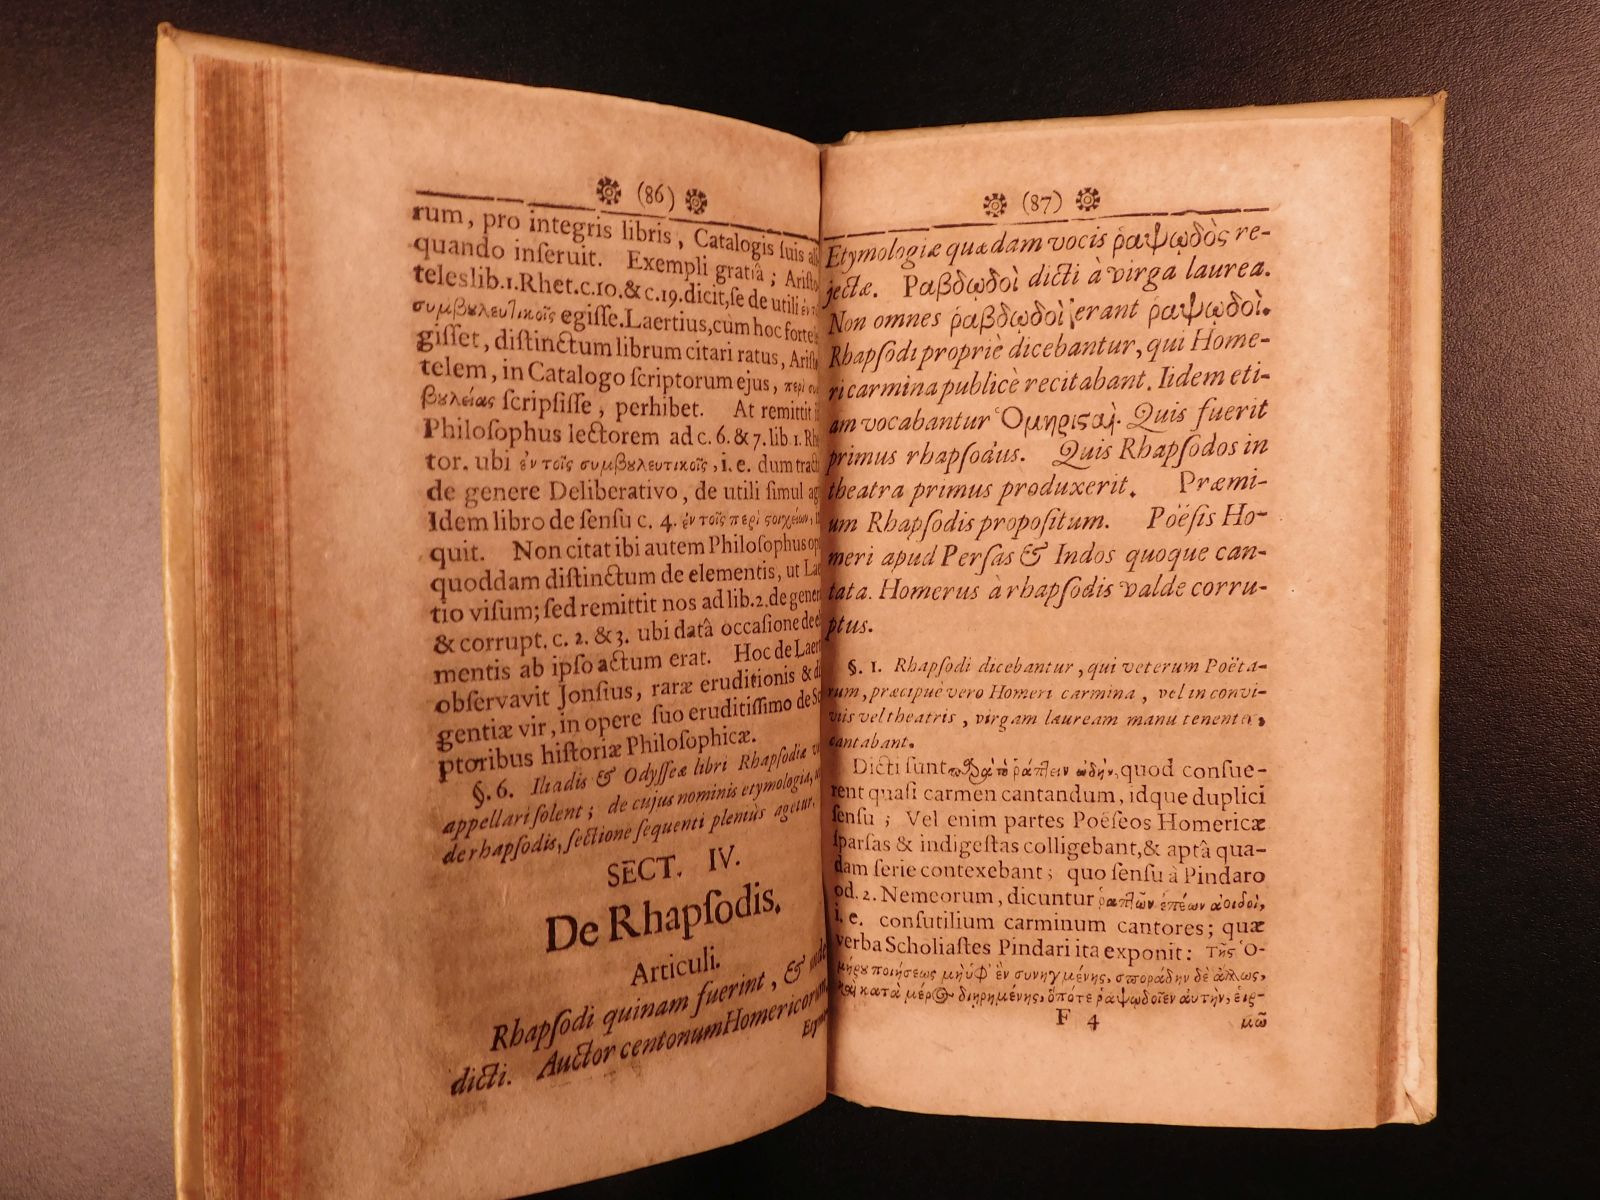 (86)
rum, pro integris libris, Catalogis ſuis ali
quando inſeruit. Exempli gratiâ; Ariſto
teles lib. 1. Rhet. c. 10. & c. 19. dicit, ſe de utili
συμβȣλευτικοῖς egiſſe. Laertius, cùm hoc forte
giſſet, diſtinctum librum citari ratus, Ariſto
telem, in Catalogo ſcriptorum ejus, περὶ συμ
βȣλείας ſcripſiſſe, perhibet. At remittit
Philoſophus lectorem ad c. 6. & 7. lib 1. Rhe
tor. ubi ἐν τοῖς συμβȣλευτικοῖς, i. e. dum tract
de genere Deliberativo, de utili ſimul ag
Idem libro de ſenſu c. 4. ἐν τοῖς περὶ ϛοιχείων, in
quit. Non citat ibi autem Philoſophus op
quoddam diſtinctum de elementis, ut Laer
tio viſum; ſed remittit nos ad lib. 2. de gener
& corrupt. c. 2. & 3. ubi datâ occaſione de e
mentis ab ipſo actum erat. Hoc de Laer
obſervavit Jonſius, raræ eruditionis & di
gentiæ vir, in opere ſuo eruditiſſimo de Sc
ptoribus hiſtoriæ Philoſophicæ.
§. 6. Iliadis & Odyſſeæ libri Rhapſodiæ
appellari ſolent; de cujus nominis etymologia,
de rhapſodis, ſectione ſequenti pleniùs agetur.
SECT. IV.
De Rhapſodis.
Articuli.
Rhapſodi quinam fuerint, & unde
dicti. Auctor centonum Homericorum.
Etymo
(87)
Etymologiæ quædam vocis ῥαψῳδὸς re-
jectæ. Ραβδῳδοὶ dicti à virga laurea.
Non omnes ῥαβδῳδοὶ erant ῥαψῳδοὶ.
Rhapſodi propriè dicebantur, qui Home-
ri carmina publicè recitabant. Iidem eti-
am vocabantur Ὁμηριϛαὶ. Quis fuerit
primus rhapſodus. Quis Rhapſodos in
theatra primus produxerit. Præmi-
um Rhapſodis propoſitum. Poëſis Ho-
meri apud Perſas & Indos quoque can-
tata. Homerus à rhapſodis valde corru-
ptus.
§. 1. Rhapſodi dicebantur, qui veterum Poëta-
rum, præcipuè vero Homeri carmina, vel in convi-
viis vel theatris, virgam lauream manu tenentes,
cantabant.
Dicti ſunt παρὰ τὸ ῥάπτειν ᾠδὴν, quod conſue-
rent quaſi carmen cantandum, idque duplici
ſenſu; Vel enim partes Poëſeos Homericæ
ſparſas & indigeſtas colligebant, & aptâ qua-
dam ſerie contexebant; quo ſenſu à Pindaro
od. 2. Nemeorum, dicuntur ῥαπτῶν ἐπέων ἀοιδοὶ,
i. e. conſutilium carminum cantores; quæ
verba Scholiaſtes Pindari ita exponit: Τῆς Ὁ-
μήρȣ ποιήσεως μὴ ὑφ' ἓν συνηγμένης, σποράδην δὲ ἄλλως,
καὶ κατὰ μέρος διῃρημένης, ὁπότε ῥαψῳδοῖεν αὐτὴν, εἱρ-
F 4
μῶ